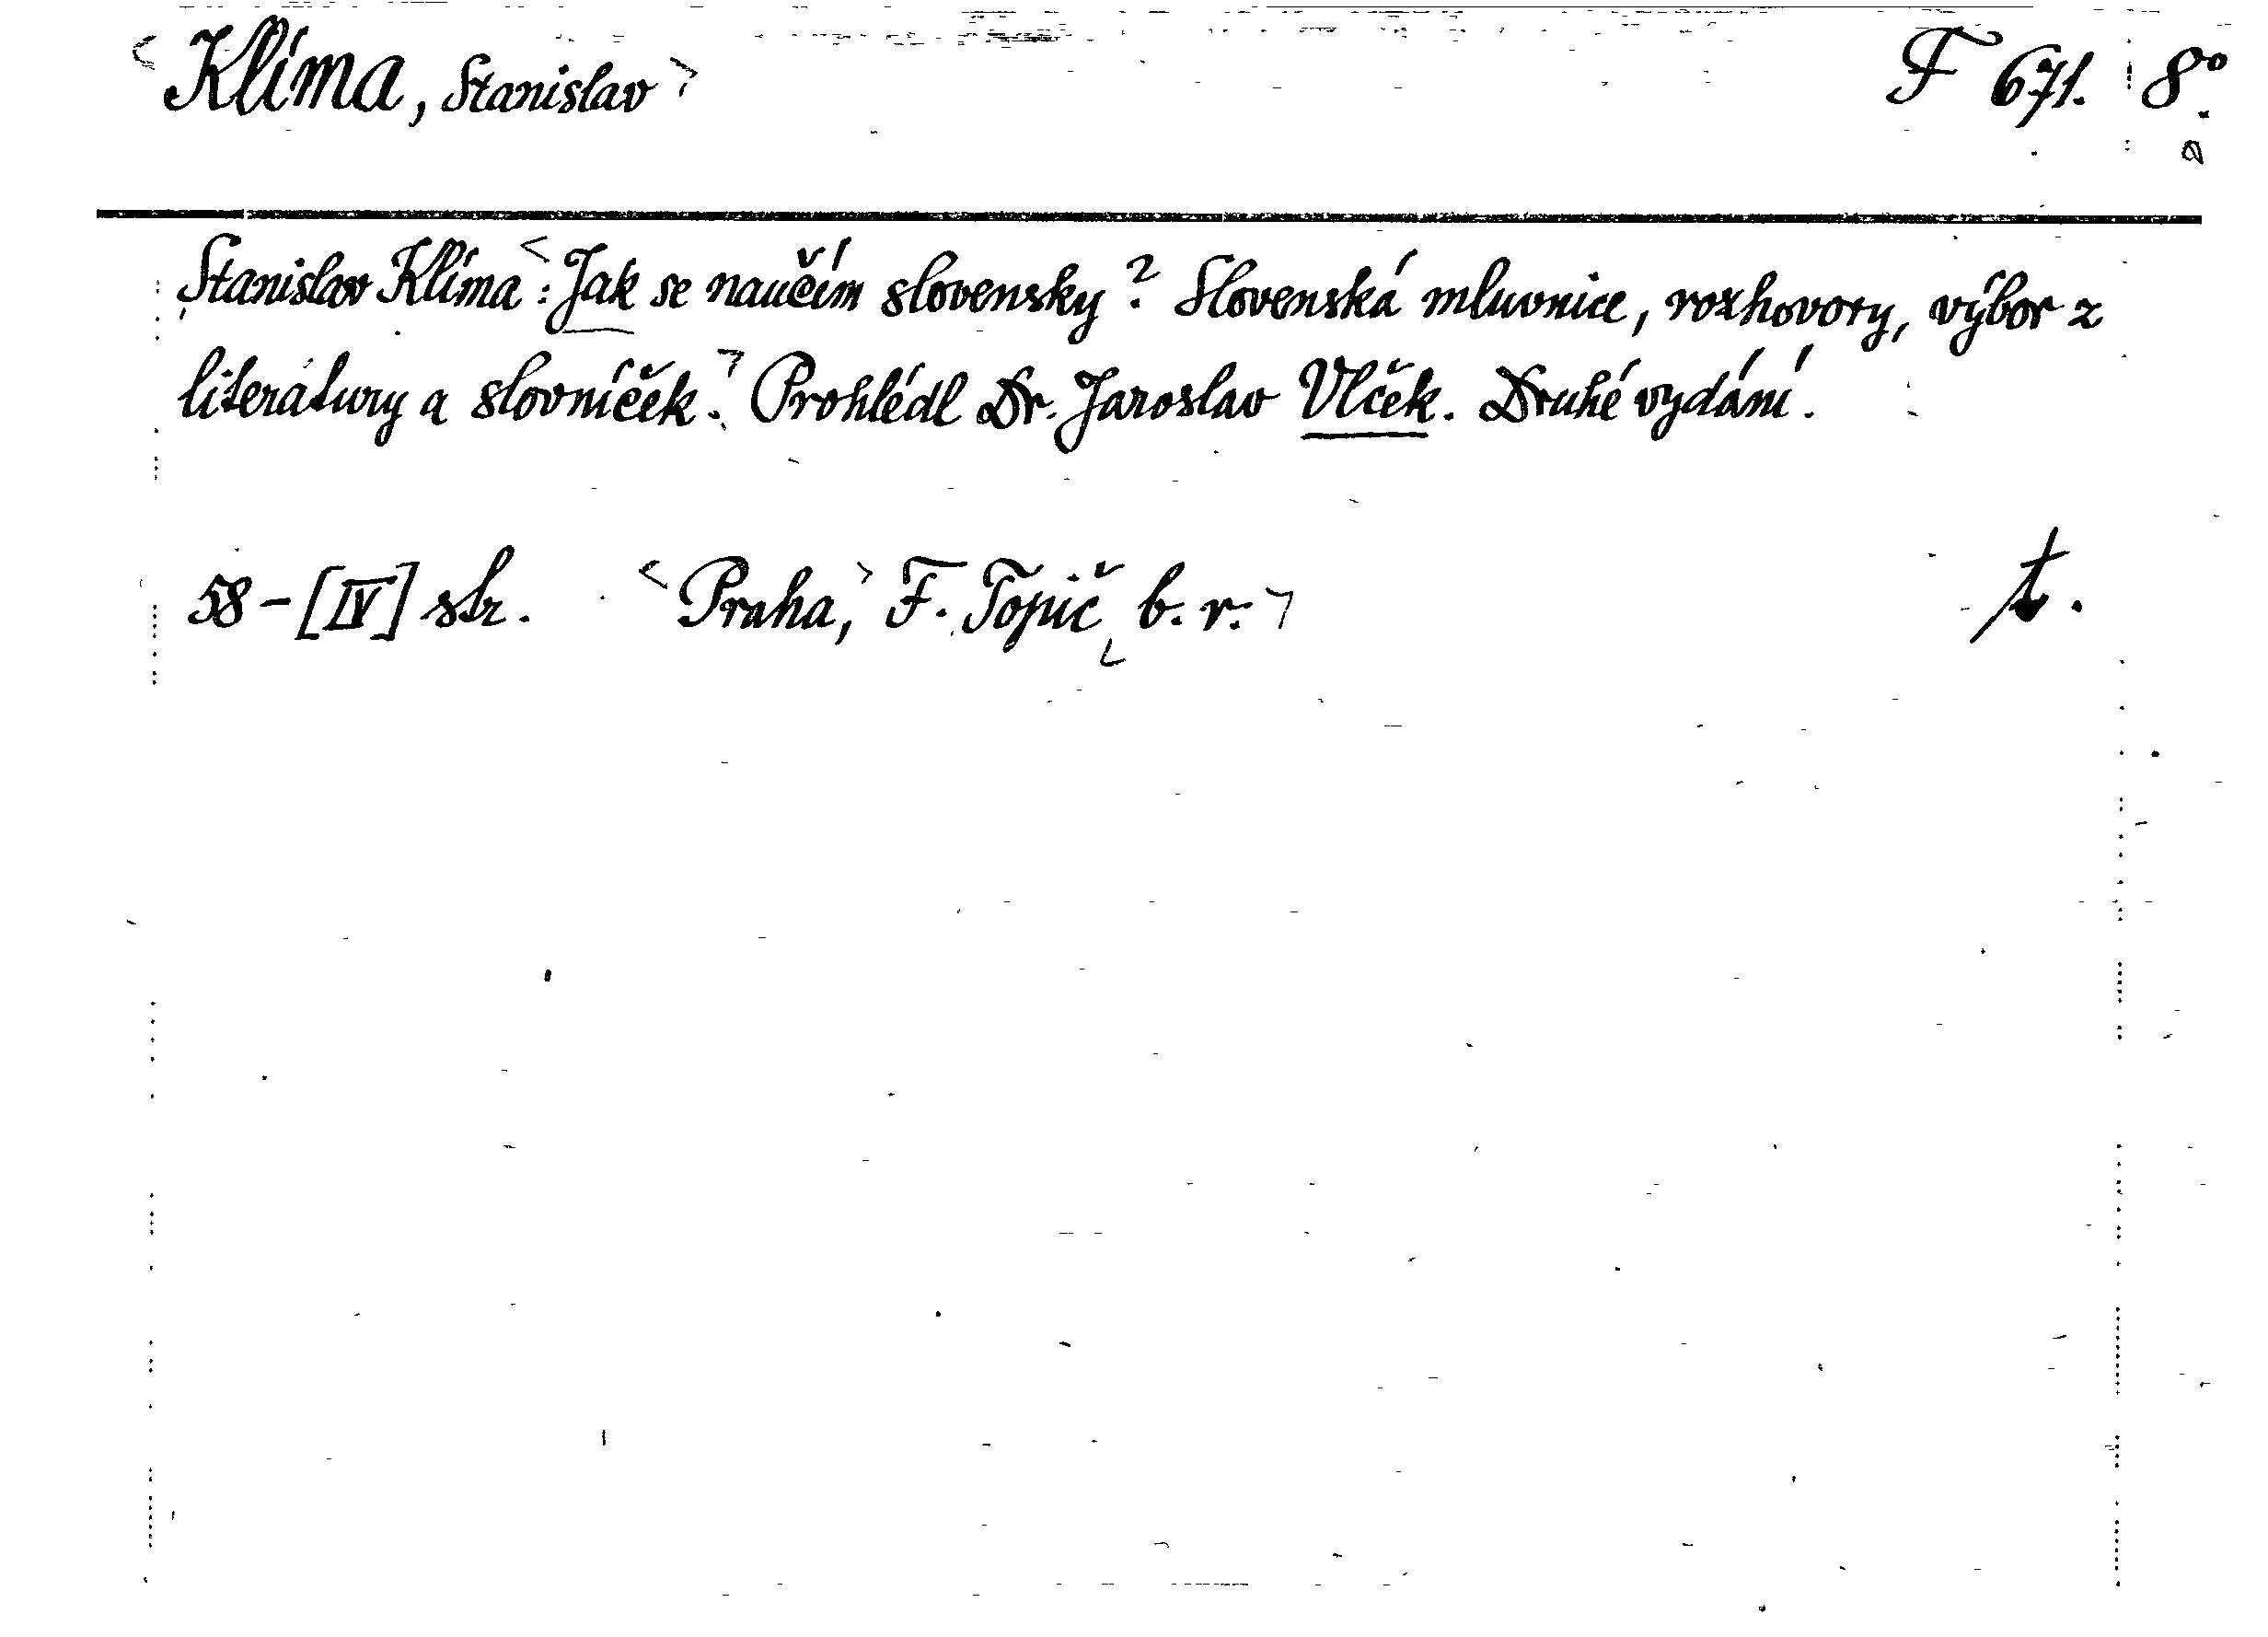 <Klíma, Stanislav> F 671. 8°.
a
Stanislav Klíma: <Jak se naučím slovensky? Slovenská mluvnice, rozhovory, výbor z
literatury a slovníček.> Prohlédl Dr. Jaroslav Vlček. Druhé vydání.
58-[IV] str. <Praha,> F. Topič <b. r.> t.